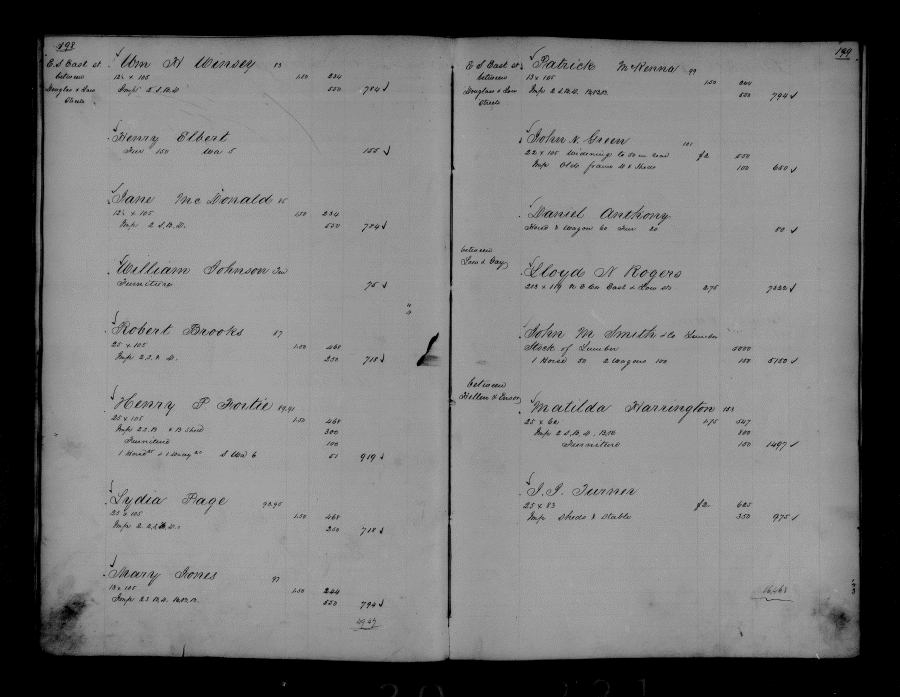 198
E. S. East st.
between
Douglass & Low
Streets
Wm H Winsey 83
12½ x 105 1.50 234
Imps 2 S. B. D. 550 784
Henry Elbert
Fur 150 Wa 5 155
Jane McDonald 85
12½ x 105 1.50 234
Imps 2 S. B. D. 550 784
William Johnson
Furniture 75
Robert Brooks 87
25 x 105 1.50 468
Imps 2 S. F. D. 250 718
Henry P. Fortie 89.91
25 x 105 1.50 468
Imps 2 S. B. & B Shed 300
Furniture 100
1 Horse & 1 Wag S Wa 6 51 919
Lydia Page 93.95
25 x 105 1.50 468
Imps 2 2 S. D. 250 718
Mary Jones 97
13 x 105 1.50 244
Imps 2 S B. D. B. B. B. 550 794
4947
199
E S East st.
between
Douglass & Low
Streets
Patrick McKenna 99
13 x 105 1.50 244
Imps 2 S. B. D. B. B. B. 550 794
John N. Green 101
22 x 105 Widening to 50 in rear $2 550
Imps Old frame D & Sheds 100 650
Daniel Anthony
Horse & Wagon 60 Fur 20 80
between
Low & Gay
Lloyd N Rogers
213 x 119 N E Cor East & Low sts 275 7322
John M Smith & Co Lumber
Stock of Lumber 5000
1 Horse 50 2 Wagons 100 150 5150
between
Hillen & Ensor
Matilda Harrington 123
25 x 62½ 1.75 547
Imps 2 S. B. D. B. B. 800
Furniture 150 1497
J. J. Turner
25 x 83 $2 625
Imps Sheds & Stable 350 975
16,463